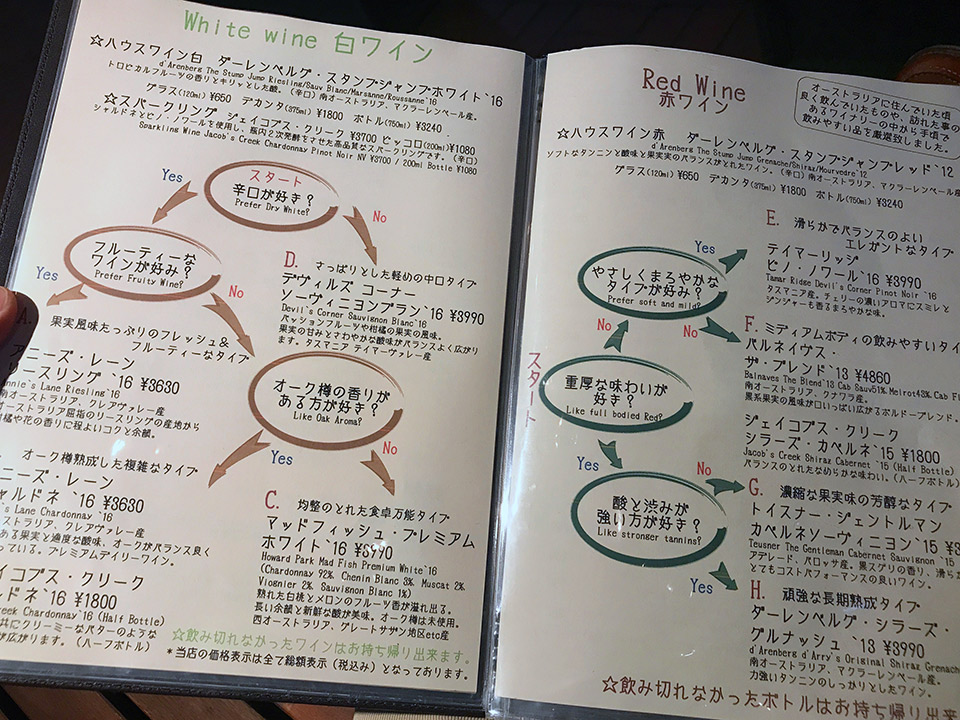 White wine 白ワイン
☆ハウスワイン白 ダーレンベルグ・スタンプジャンプホワイト`16
d'Arenberg The Stump Jump Riesling/Sauv Blanc/Marsanne/Roussanne`16
トロピカルフルーツの香りとキリッとした酸。(辛口) 南オーストラリア、マクラーレンベール産。
グラス(120ml) ¥650 デカンタ(375ml) ¥1800 ボトル(750ml) ¥3240
☆スパークリング ジェイコブス・クリーク ¥3700 ピッコロ(200ml)¥1080
シャルドネとピノ・ノワールを使用し、瓶内2次発酵をさせた高品質なスパークリングです。(辛口)
Sparkling Wine Jacob's Creek Chardonnay Pinot Noir NV ¥3700 / 200ml Bottle ¥1080
スタート
辛口が好き?
Prefer Dry White?
Yes
No
フルーティーな
ワインが好み?
Prefer Fruity Wine?
Yes
No
D. さっぱりとした軽めの中口タイプ
デヴィルズ コーナー
ソーヴィニヨンブラン`16 ¥3990
Devil's Corner Sauvignon Blanc`16
パッションフルーツや柑橘の果実の風味。
果実の甘みとさわやかな酸味がバランスよく広がります。タスマニア テイマーヴァレー産
A. 果実風味たっぷりのフレッシュ&
フルーティーなタイプ
ニーズ・レーン
リースリング`16 ¥3630
nnie's Lane Riesling`16
南オーストラリア、クレアヴァレー産
オーストラリア屈指のリースリングの産地から
柑橘や花の香りに程よいコクと余韻。
オーク樽の香りが
ある方が好き?
Like Oak Aroma?
Yes
No
オーク樽熟成した複雑なタイプ
ニーズ・レーン
ャルドネ`16 ¥3630
's Lane Chardonnay`16
オーストラリア、クレアヴァレー産
ある果実と適度な酸味、オークがバランス良く
っている。プレミアムデイリーワイン。
イコブス・クリーク
ルドネ`16 ¥1800
reek Chardonnay`16 (Half Bottle)
共にクリーミーなバターのような
が広がります。(ハーフボトル)
C. 均整のとれた食卓万能タイプ
マッドフィッシュ・プレミアム
ホワイト`16 ¥3990
Howard Park Mad Fish Premium White`16
(Chardonnay 92% Chenin Blanc 3% Muscat 2%
Viognier 2% Sauvignon Blanc 1%)
熟れた白桃とメロンのフルーツ香が溢れ出る。
長い余韻と新鮮な酸が美味。オーク樽は未使用。
西オーストラリア、グレートサザン地区etc産
☆飲み切れなかったワインはお持ち帰り出来ます。
*当店の価格表示は全て総額表示(税込み)となっております。
Red Wine
赤ワイン
オーストラリアに住んでいた頃
良く飲んでいたものや、訪れた事の
あるワイナリーの中から手頃で
飲みやすい品を厳選致しました。
☆ハウスワイン赤 ダーレンベルグ・スタンプジャンプレッド`12
d'Arenberg The Stump Jump Grenache/Shiraz/Mourvedre`12
ソフトなタンニンと酸味と果実実のバランスがとれたワイン。(辛口)南オーストラリア、マクラーレンベール産
グラス(120ml) ¥650 デカンタ(375ml) ¥1800 ボトル(750ml) ¥3240
スタート
重厚な味わいが
好き?
Like full bodied Red?
No
Yes
やさしくまろやかな
タイプが好み?
Prefer soft and mild?
Yes
No
酸と渋みが
強い方が好き?
Like stronger tannins?
No
Yes
E. 滑らかでバランスのよい
エレガントなタイプ
テイマーリッジ
ピノ・ノワール`16 ¥3990
Tamar Ridge Devil's Corner Pinot Noir `16
タスマニア産。チェリーの濃いアロマにスミレと
ジンジャーも香るまろやかな味。
F. ミディアムボディの飲みやすいタイ
バルネイヴス・
ザ・ブレンド`13 ¥4860
Balnaves The Blend`13 Cab Sauv51% Merlot43% Cab F
南オーストラリア、クナワラ産。
黒系果実の風味が口いっぱい広がるボルドーブレンド。
ジェイコブス・クリーク
シラーズ・カベルネ`15
Jacob's Creek Shiraz Cabernet `15 (Half Bottle)
バランスのとれたなめらかな味わい。(ハーフボトル)
G. 濃縮な果実味の芳醇なタイプ
トイスナー・ジェントルマン
カベルネソーヴィニヨン`15 ¥3
Teusner The Gentleman Cabernet Sauvignon `15
アデレード、バロッサ産。黒スグリの香り、滑らか
とてもコストパフォーマンスの良いワイン。
H. 頑強な長期熟成タイプ
ダーレンベルグ・シラーズ・
グルナッシュ `13 ¥3990
d'Arenberg d'Arry's Original Shiraz Grenac
南オーストラリア、マクラーレンベール産。
力強いタンニンのしっかりとしたワイン。
☆飲み切れなかったボトルはお持ち帰り出来